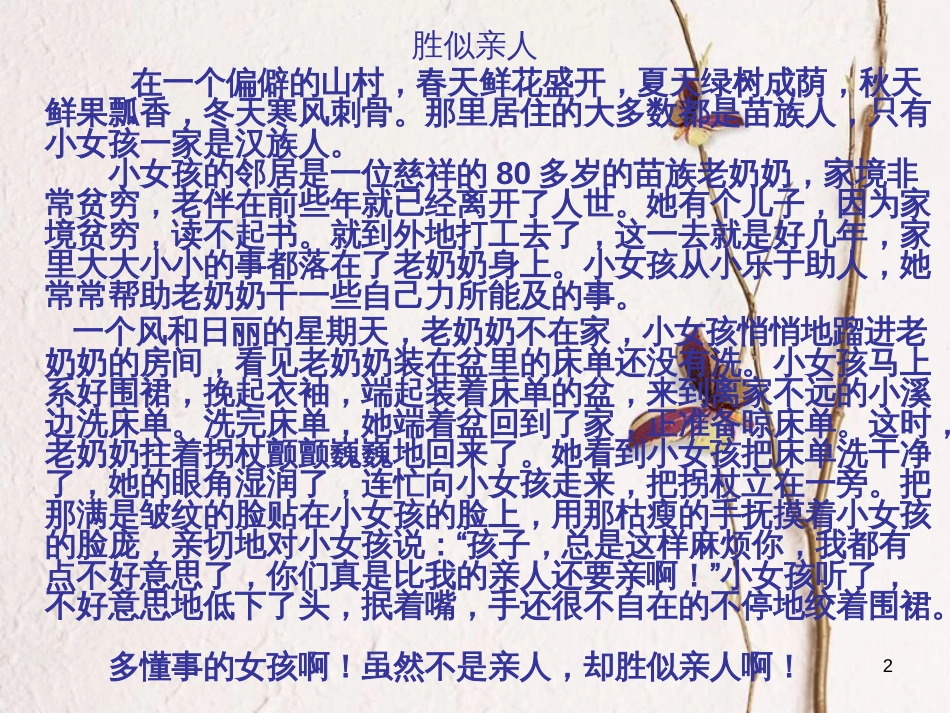 胜似亲人
在一个偏僻的山村，春天鲜花盛开，夏天绿树成荫，秋天
鲜果飘香，冬天寒风刺骨。那里居住的大多数都是苗族人，只有
小女孩一家是汉族人。
小女孩的邻居是一位慈祥的 80 多岁的苗族老奶奶，家境非
常贫穷，老伴在前些年就已经离开了人世。她有个儿子，因为家
境贫穷，读不起书。就到外地打工去了，这一去就是好几年，家
里大大小小的事都落在了老奶奶身上。小女孩从小乐于助人，她
常常帮助老奶奶干一些自己力所能及的事。
一个风和日丽的星期天，老奶奶不在家，小女孩悄悄地蹓进老
奶奶的房间，看见老奶奶装在盆里的床单还没有洗。小女孩马上
系好围裙，挽起衣袖，端起装着床单的盆，来到离家不远的小溪
边洗床单。洗完床单，她端着盆回到了家，正准备晾床单。这时，
老奶奶拄着拐杖颤颤巍巍地回来了。她看到小女孩把床单洗干净
了，她的眼角湿润了，连忙向小女孩走来，把拐杖立在一旁。把
那满是皱纹的脸贴在小女孩的脸上，用那枯瘦的手抚摸着小女孩
的脸庞，亲切地对小女孩说：“孩子，总是这样麻烦你，我都有
点不好意思了，你们真是比我的亲人还要亲啊！”小女孩听了，
不好意思地低下了头，抿着嘴，手还很不自在的不停地绞着围裙。
多懂事的女孩啊！虽然不是亲人，却胜似亲人啊！
2